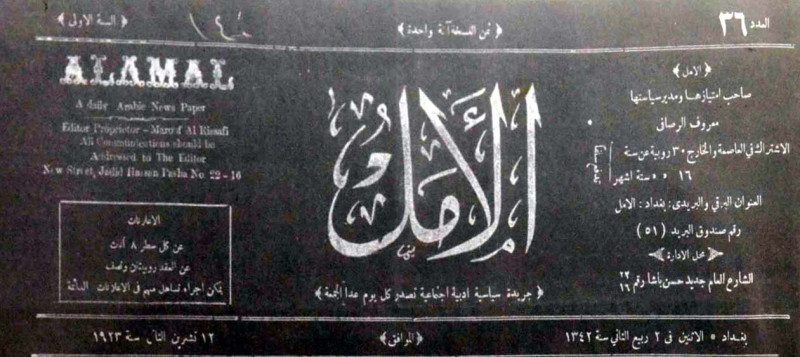 العدد ٣٦
﴿ ثمن النسخة آنة واحدة ﴾
﴿ السنة الاولى ﴾
﴿ الامل ﴾
صاحب امتيازها ومدير سياستها
معروف الرصافي
الاشتراك في العاصمة والخارج ٣٠ روبية عن سنة
١٦ » » ستة اشهر
العنوان البرقي والبريدي: بغداد: الامل
رقم صندوق البريد ( ٥١ )
محل الادارة
الشارع العام جديد حسن باشا رقم ٢٢/١٦
الأمل
﴿ جريدة سياسية ادبية اجتماعية تصدر كل يوم عدا الجمعة ﴾
ALAMAL
A daily Arabic News Paper
Editor Proprietor - Marouf Al Rissafi
All Communications should be
Addressed to The Editor
New Street, Jadid Hassan Pasha No. 22-16
الاعلانات
عن كل سطر ٨ آنات
عن العقد روبيتان ونصف
يمكن اجراء تساهل مهم في الاعلانات الدائمة
بغداد * الاثنين في ٢ ربيع الثاني سنة ١٣٤٢
﴿ الموافق ﴾
١٢ تشرين الثاني سنة ١٩٢٣